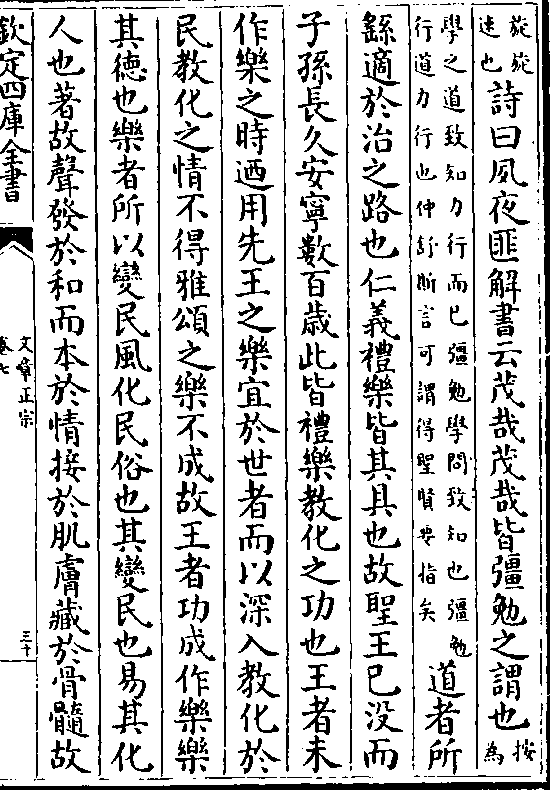 旋旋速也詩曰夙夜匪解書云茂哉茂哉皆彊勉之謂也按為
學之道致知力行而已彊勉學問致知也彊勉行道力行也仲舒斯言可謂得聖賢要指矣道者所
繇適於治之路也仁義禮樂皆其具也故聖王已没而
子孫長久安寧數百歳此皆禮樂教化之功也王者未
作樂之時迺用先王之樂宜於世者而以深入教化於
民教化之情不得雅頌之樂不成故王者功成作樂樂
其徳也樂者所以變民風化民俗也其變民也易其化
人也著故聲發於和而本於情接於肌膚藏於骨髓故
欽定四庫全書
文章正宗
卷七
三十